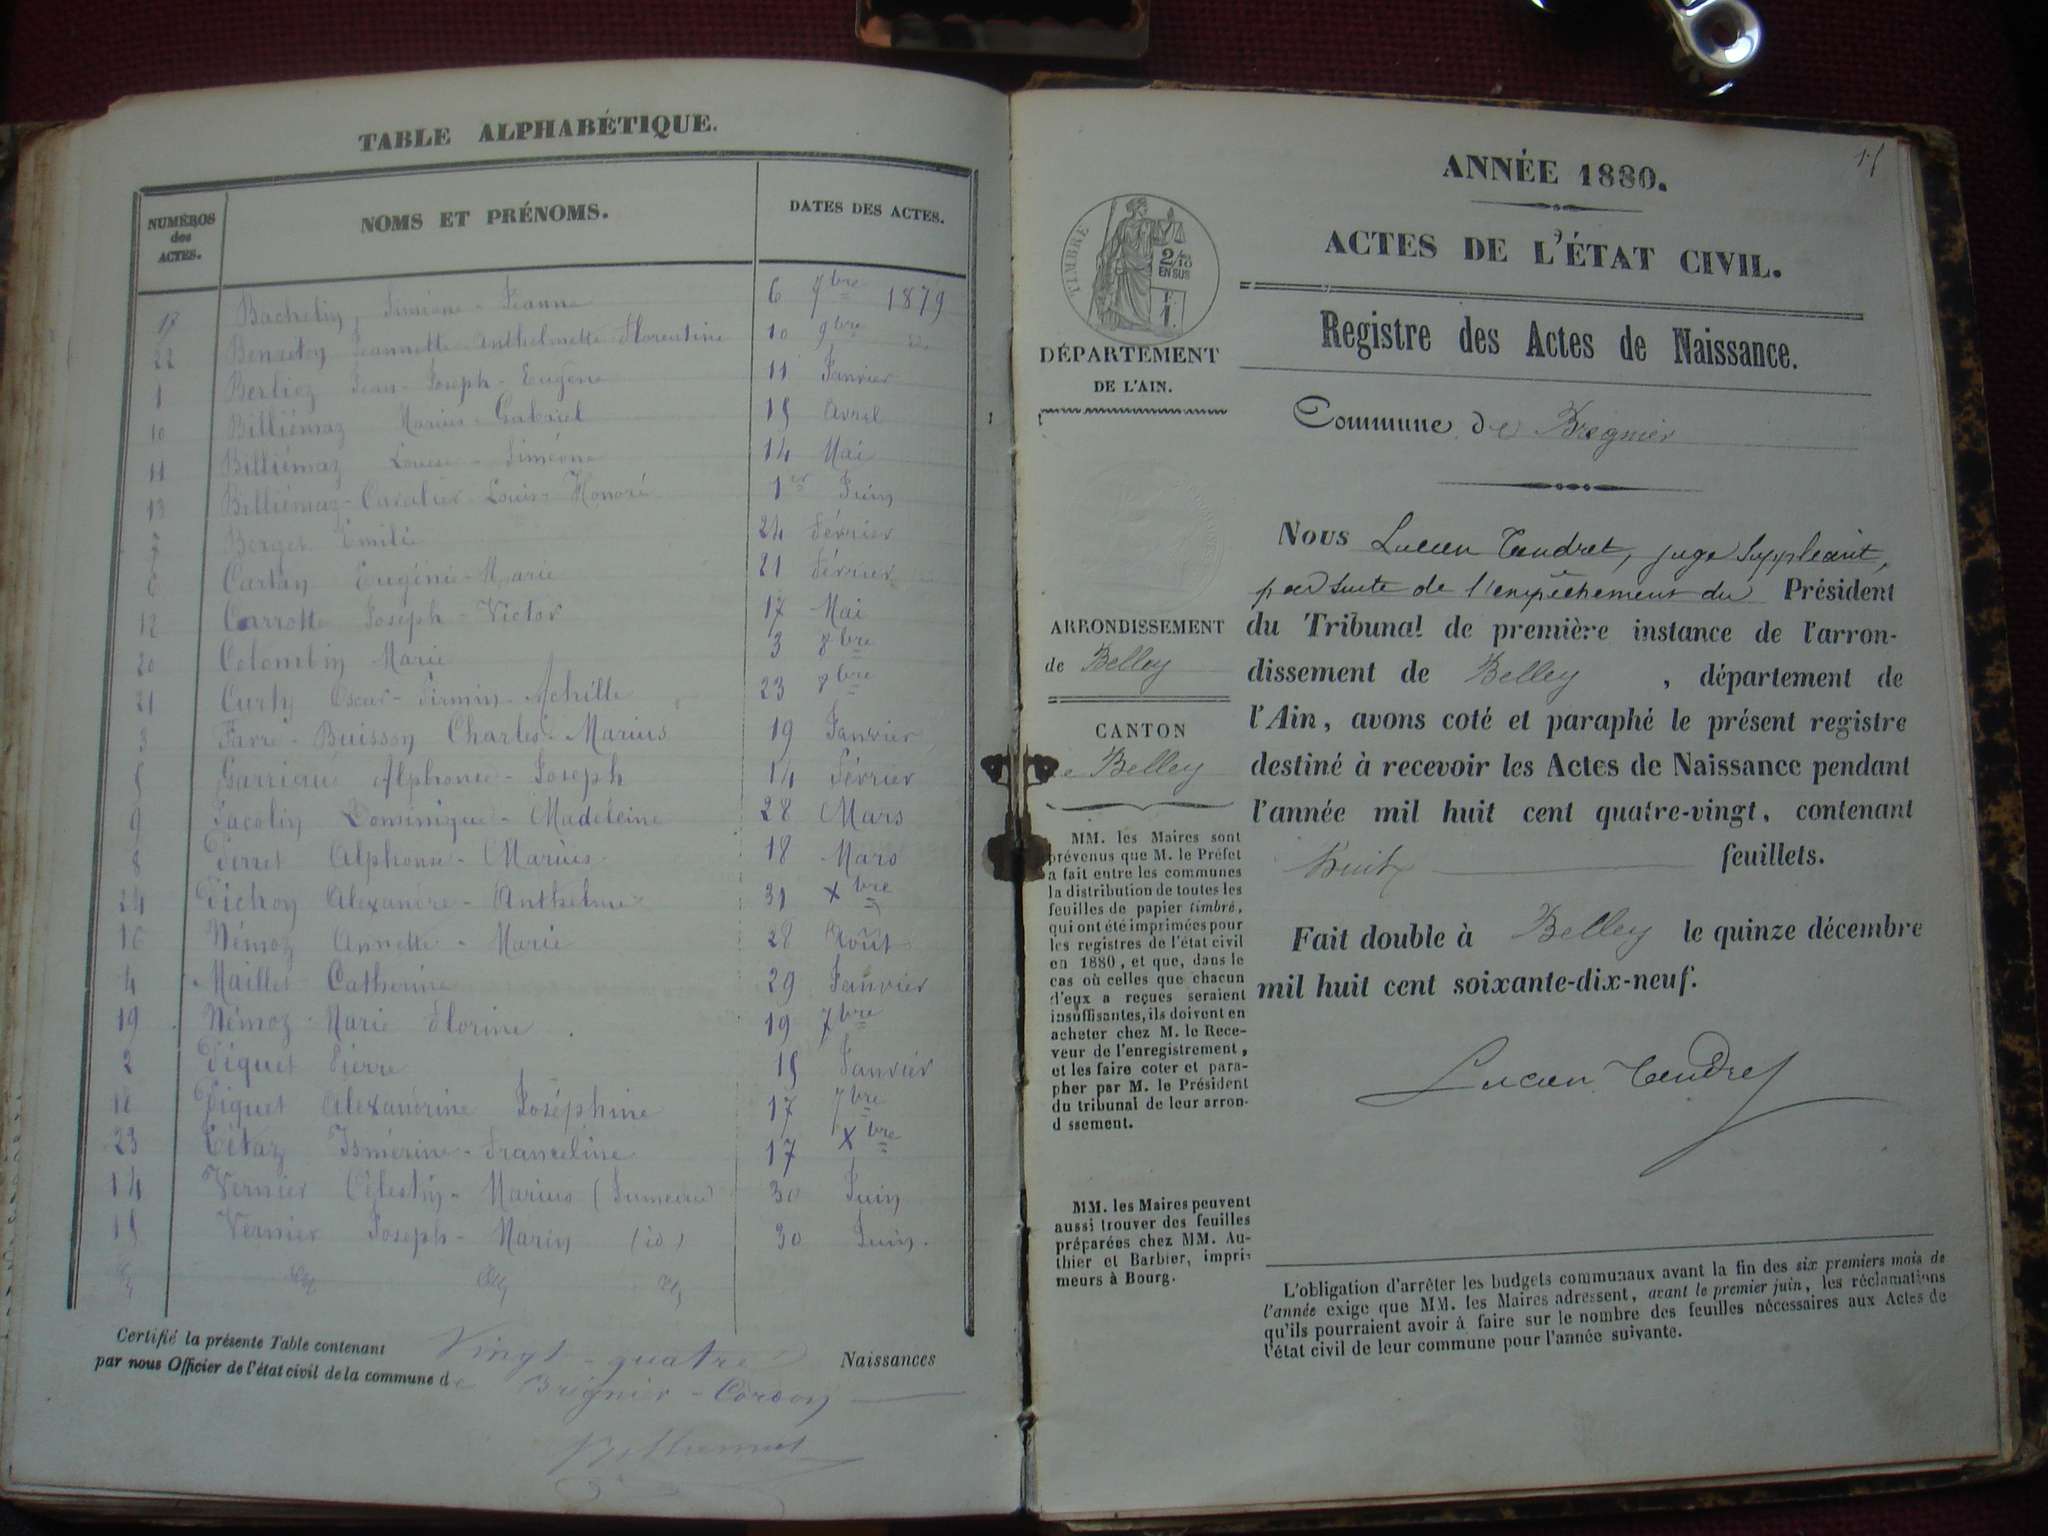 TABLE ALPHABÉTIQUE.
NUMÉROS des ACTES. NOMS ET PRÉNOMS. DATES DES ACTES.
17 Bachelin, Siméone - Jeanne 6 7bre 1879
22 Jeannette Anthelmette Florentine 10 9bre
1 Berlioz Jean - Joseph - Eugène 11 Janvier
10 Billiémaz Marius - Gabriel 15 Avril
11 Billiémaz Louise - Siméone 14 Mai
13 Billiémaz - Cavalier Louis - Honoré 1er Juin
7 Berget Emile 24 Février
6 Cartan Eugénie - Marie 21 Février
12 Carrotte Joseph - Victor 17 Mai
20 Colombin Marie 3 8bre
21 Curty Oscar - Firmin - Achille 23 8bre
3 Favre - Buisson Charles - Marius 19 Janvier
5 Alphonse - Joseph 14 Février
9 Jacolin Dominique - Madeleine 28 Mars
8 Perret Alphonse - Marius 18 Mars
24 Pichon Alexandre - Anthelme 31 Xbre
16 Némoz Annette - Marie 28 Août
4 Maillet Catherine 29 Janvier
19 Némoz Marie Florine 19 7bre
2 Piquet Pierre 15 Janvier
18 Piquet Alexandrine Joséphine 17 7bre
23 Tétaz Ismérine - Franceline 17 Xbre
14 Vernier Célestin - Marius (Jumeau) 30 Juin
15 Vernier Joseph - Marin (id) 30 Juin.
Certifié la présente Table contenant Vingt - quatre Naissances
par nous Officier de l'état civil de la commune de Brégnier - Cordon
1 f
ANNÉE 1880.
ACTES DE L'ÉTAT CIVIL.
Registre des Actes de Naissance.
TIMBRE
2/10
EN SUS
F.
1.
DÉPARTEMENT
DE L'AIN.
Commune de Bregnier
Nous Lucien Tendret, juge Suppléant,
par suite de l'empêchement du Président
du Tribunal de première instance de l'arron-
dissement de Belley, département de
l'Ain, avons coté et paraphé le présent registre
destiné à recevoir les Actes de Naissance pendant
l'année mil huit cent quatre-vingt, contenant
huit feuillets.
Fait double à Belley le quinze décembre
mil huit cent soixante-dix-neuf.
Lucien Tendret
ARRONDISSEMENT
de Belley
CANTON
de Belley
MM. les Maires sont
prévenus que M. le Préfet
a fait entre les communes
la distribution de toutes les
feuilles de papier timbré,
qui ont été imprimées pour
les registres de l'état civil
en 1880, et que, dans le
cas où celles que chacun
d'eux a reçues seraient
insuffisantes, ils doivent en
acheter chez M. le Rece-
veur de l'enregistrement,
et les faire coter et para-
pher par M. le Président
du tribunal de leur arron-
d ssement.
MM. les Maires peuvent
aussi trouver des feuilles
préparées chez MM. Au-
thier et Barbier, impri-
meurs à Bourg.
L'obligation d'arrêter les budgets communaux avant la fin des six premiers mois de
l'année exige que MM. les Maires adressent, avant le premier juin, les réclamations
qu'ils pourraient avoir à faire sur le nombre des feuilles nécessaires aux Actes de
l'état civil de leur commune pour l'année suivante.